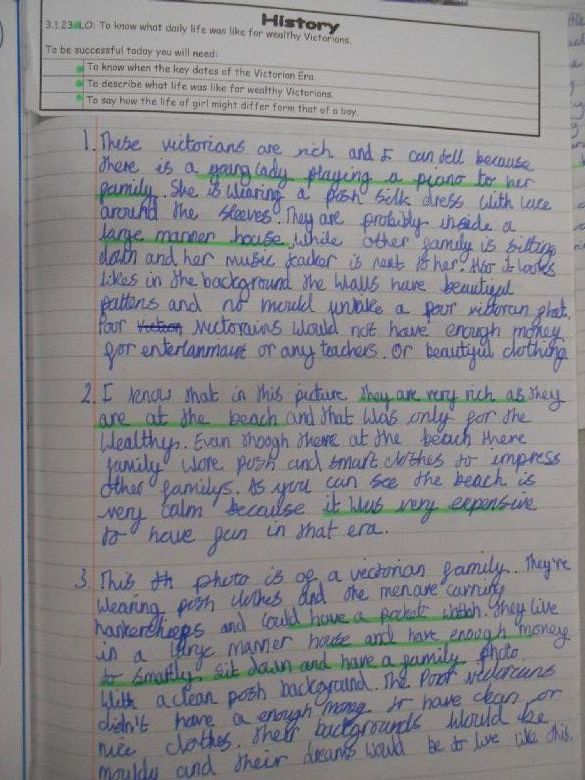 History
3.1.23 LO: To know what daily life was like for wealthy Victorians.
To be successful today you will need:
To know when the key dates of the Victorian Era.
To describe what life was like for wealthy Victorians.
To say how the life of girl might differ form that of a boy.
1. These victorians are rich and I can tell because
there is a young lady playing a piano to her
family. She is wearing a posh silk dress with lace
around the sleeves. They are probibly inside a
large manner house while other family is sitting
down and her music teacher is next to her. Also it looks
likes in the background the walls have beautiyul
pattens and no mould unlike a poor victoran
Poor victorains would not have enough money
for entertanmant or any teachers. Or beautiyul clothing
2. I know that in this picture they are very rich as they
are at the beach and that was only for the
wealthys. Evan thoogh there at the beach there
family wore posh and smart clothes to impress
other familys. As you can see the beach is
very calm because it was very expensive
to have fun in that era.
3. This th photo is of a vectorian family. They're
wearing posh clothes and the men are carring
and could have a pocket watch. They live
in a large manner house and have enough money
to smartly sit down and have a family photo
with a clean posh background. The Poor
didn't have a enough to have clean or
nice clothes. Their backgrounds would be
mouldy and their dreams would be to live like this.